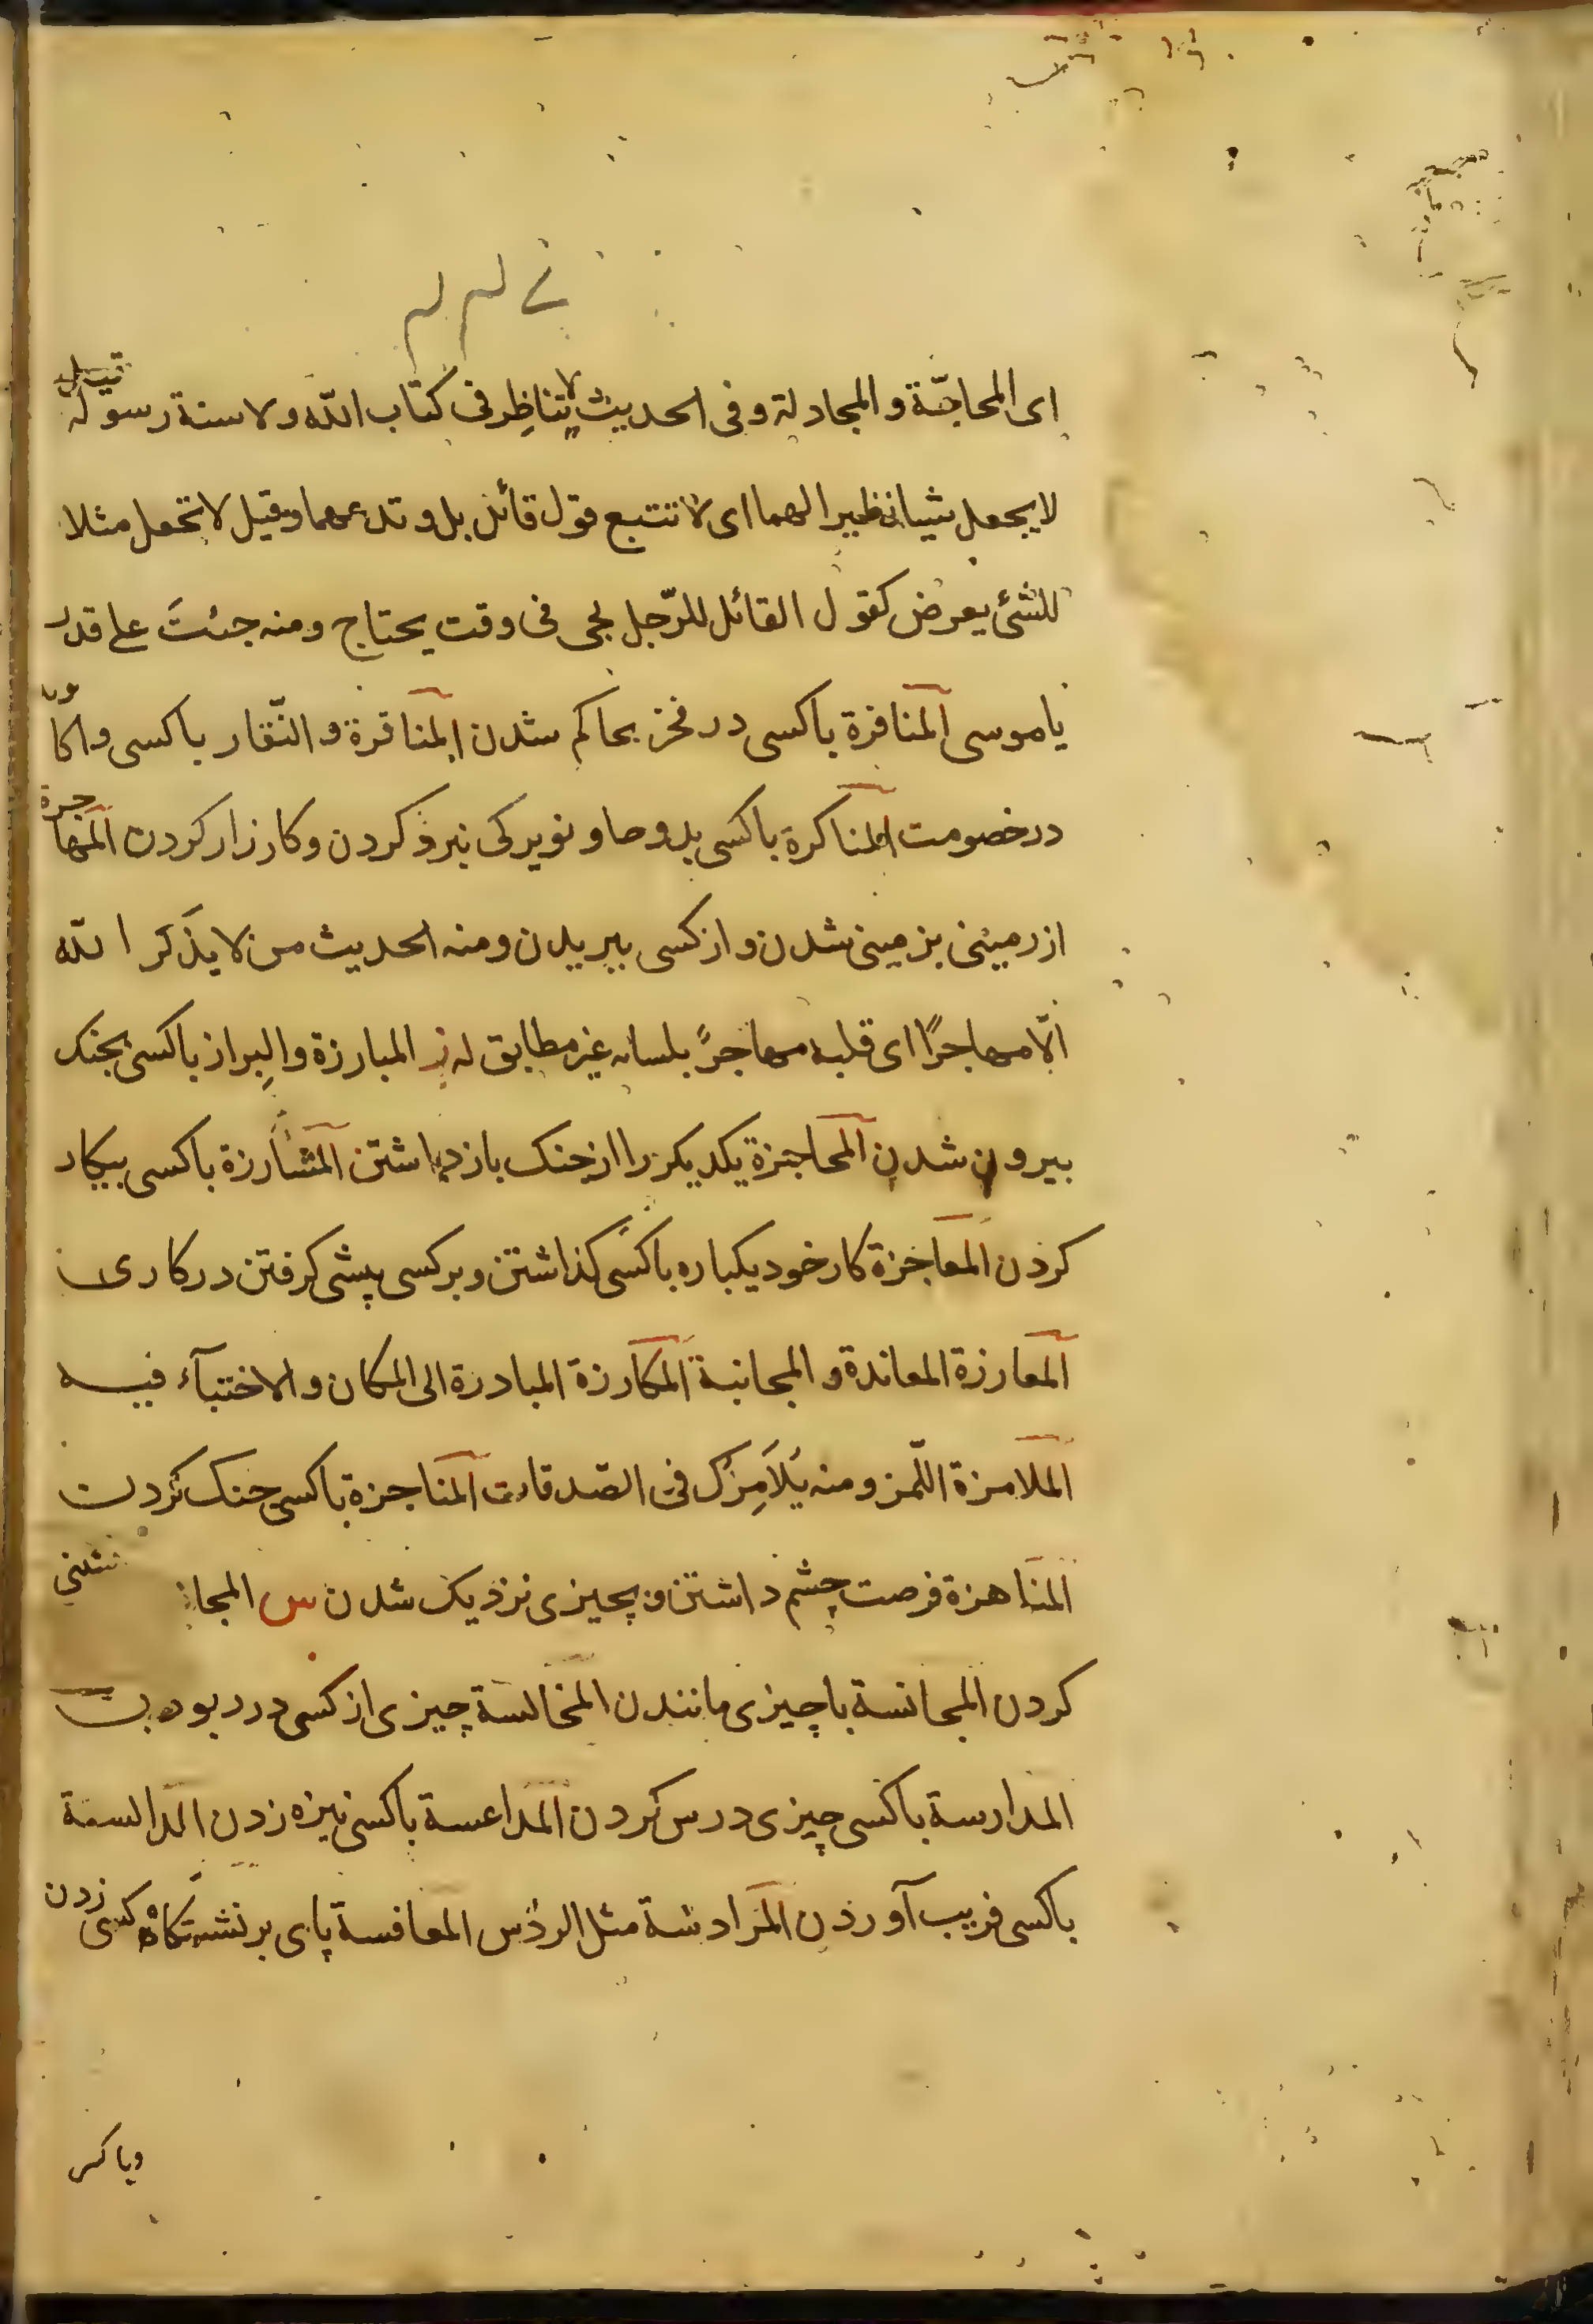 ای المحاجّة و المجادلة و فی الحدیث لا تناظِر فی کتاب الله ولا سنة رسوله قیل
لا یجعل شیا نظیرا لهما ای لا تتبع قول قائل بل و تدعهما وقیل لا تجعل مثلا
للشئ یعرض کقول القائل للرّجل یجی فی وقت یحتاج ومنه جئتَ علی قدر
یاموسی المنافرة باکسی در فخر بحاکم شدن المناقرة و النّقار باکسی واکا
در خصومت المناکرة باکسی بد و نبرد کردن و کارزار کردن المهاجرة
از زمینی بزمینی شدن و از کسی ببریدن ومنه الحدیث من لا یذکر الله
الّا مهاجرًا ای قلبه مهاجرً بلسانه غیر مطابق له ز المبارزة والبِراز باکسی بجنک
بیرون شدن المحاجزة یکدیکر را از جنک بازداشتن المشارزة باکسی پیکار
کردن المعاجزة کار خود یکباره باکسی کذاشتن و بر کسی پیشی کرفتن در کاری
المعارزة المعاندة و المجانبة المکارزة المبادرة الی المکان و الاختبآء فیه
الملامزة اللّمز ومنه یُلَامِزُک فی الصّدقات المناجزة باکسی جنک کردن
المناهزة فرصت چشم داشتن و بچیزی نزدیک شدن س المجا نشینی
کردن المجانسة باچیزی مانندن المخالسة چیزی از کسی در ربودن
المدارسة باکسی چیزی درس کردن المداعسة باکسی نیزه زدن المدالسة
باکسی فریب آوردن المرادسة مثل الردس المعافسة پای بر نشستکاه کسی زدن
وباکس